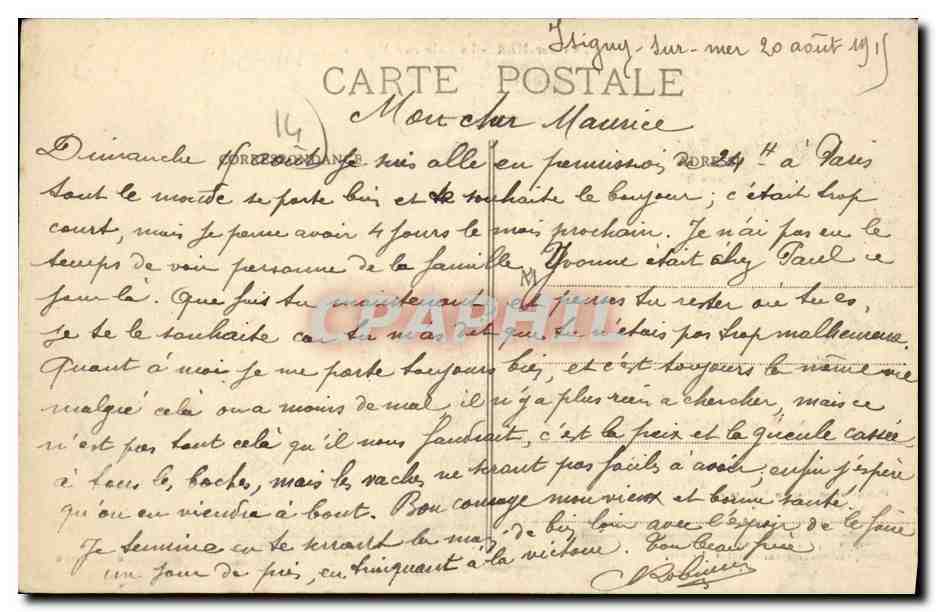 Isigny-sur-mer 20 août 1915
CARTE POSTALE
14
Mon cher Maurice
CORRESPONDANCE ADRESSE
Dimanche 15 août je suis allé en permission de 24 H à Paris
tout le monde se porte bien et te souhaite le bonjour ; c'était trop
court, mais je pense avoir 4 jours le mois prochain. Je n'ai pas eu le
temps de voir personne de la famille Yvonne était chez Paul ce
jour là. Que fais tu maintenant et penses tu rester où tu es
je te le souhaite car tu m'as dit que tu n'étais pas trop malheureux.
CPAPHIL
Quant à moi je me porte toujours bien, et c'est toujours la même vie
malgré celà on a moins de mal, il n'y a plus rien a chercher, mais ce
n'est pas tout celà qu'il nous faudrait, c'est la paix et la gueule cassée
à tous les boches, mais les vaches ne seront pas faciles à avoir, enfin j'espère
qu'on en viendra à bout. Bon courage mon vieux et bonne santé.
Je termine en te serrant la main de bien loin avec l'espoir de le faire
un jour de près, en trinquant à la victoire. Ton beau frère